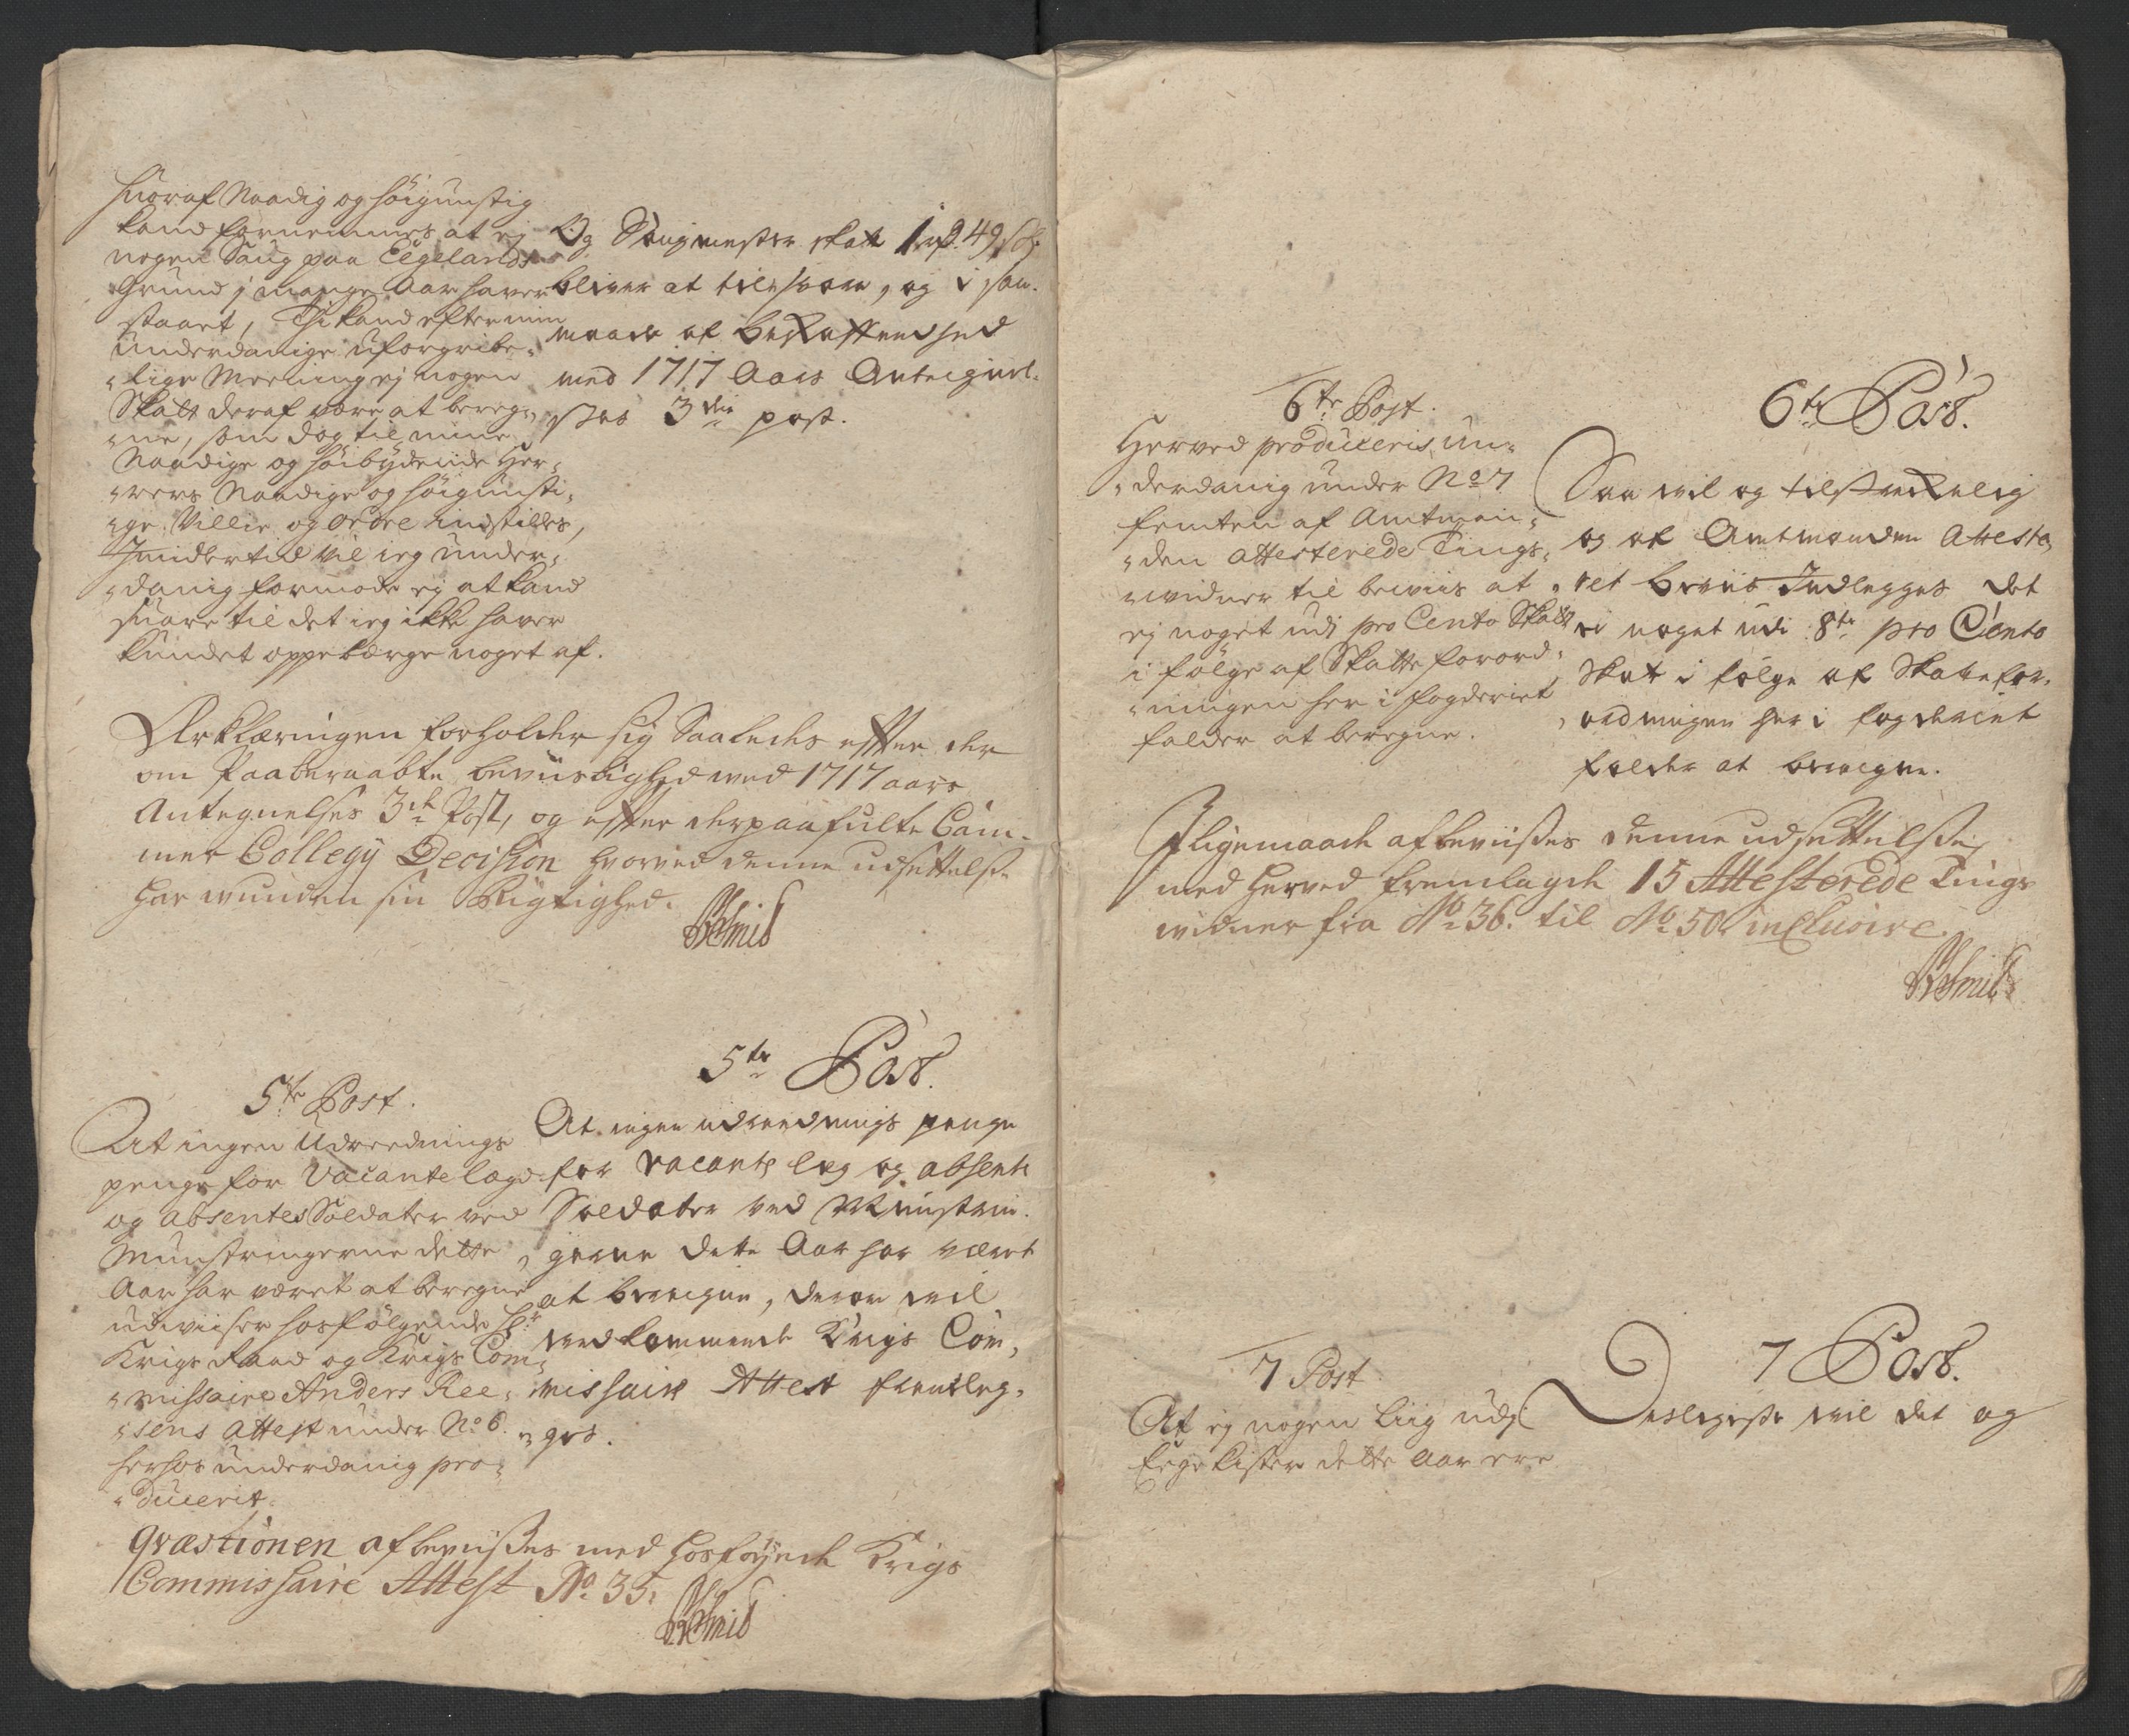 huoraf Naadig og höigunstig
kand fornemmes at ej
nogen Saug paa Eegelands
Grund j mange Aar haver
staaet, Thi kand efter min
underdanige uforgribe¬
lige Meening ej nogen
Skatt deraf være at bereg¬
ne, som dog til mine
Naadige og höibydende Her¬
rers Naadige og höigunsti¬
ge Villie og ordre indstilles,
Imidlertid vil ieg under¬
danig formode ej at kand
suare til det ieg ikke haver
kundet oppebærge noget af.
Og Saugmester skatt 1 rd. 49 s
bliver at tilsvare, og i saa¬
maade af beskaffenhed
med 1717 Aars Antegnel¬
ses 3die post.
Erklæringen forholder sig Saaledes efter der
om Paaberaabte beviislighed med 1717 aars
Antegnelses 3die Post, og efter derpaafulte Cam¬
mer Collegij Decision hvorved denne udsettelse
har wunden sin Rigtighed.
Smid
5te Post.
At ingen Udreednings
penge for Vacante læg
og absentes Soldater ved
Munstringerne dette
Aar har været at beregne
udviiser hosfölgende Hr
Krigs Raad og Krigs Com¬
missaire Anders Ree¬
sens Attest under No 6.
herhos underdanig pro¬
ducerit.
5te Post.
At ingen udreednings penge
for vacante leg og absente
Soldater ved Munstrin¬
gerne dette Aar har været
at beregne, derom vil
vedkommende Krigs Com¬
missaire Attest fremleg¬
ges.
Qvæstionen afbeviises med hosföyede Krigs
Commissaire Attest No. 35.
Smid
6te Post.
Herved produceris un¬
derdanig under No 7
femten af Amtman¬
den attesterede Tings¬
widner til beviis at
ej noget udi pro Cento Skatt
i fölge af Skatte forord¬
ningen her i fogderiet
falder at beregne.
6te Post.
Saa vil og tilstrekkelig
og af Amtmanden Atteste¬
ret beviis Indlegges det
ei noget udi 8te pro Cento
Skat i fölge af Skattefor¬
ordningen her i fogderiet
falder at beregne.
Iligemaade afbeviises denne udsettelse
med herved fremlagde 15 Attesterede Tings
widner fra No. 36. til No. 50. inclusive.
Smid
7 Post
At ej nogen Liig udj
Eege Kister dette Aar ere
7 Post.
Desligeste vil det og